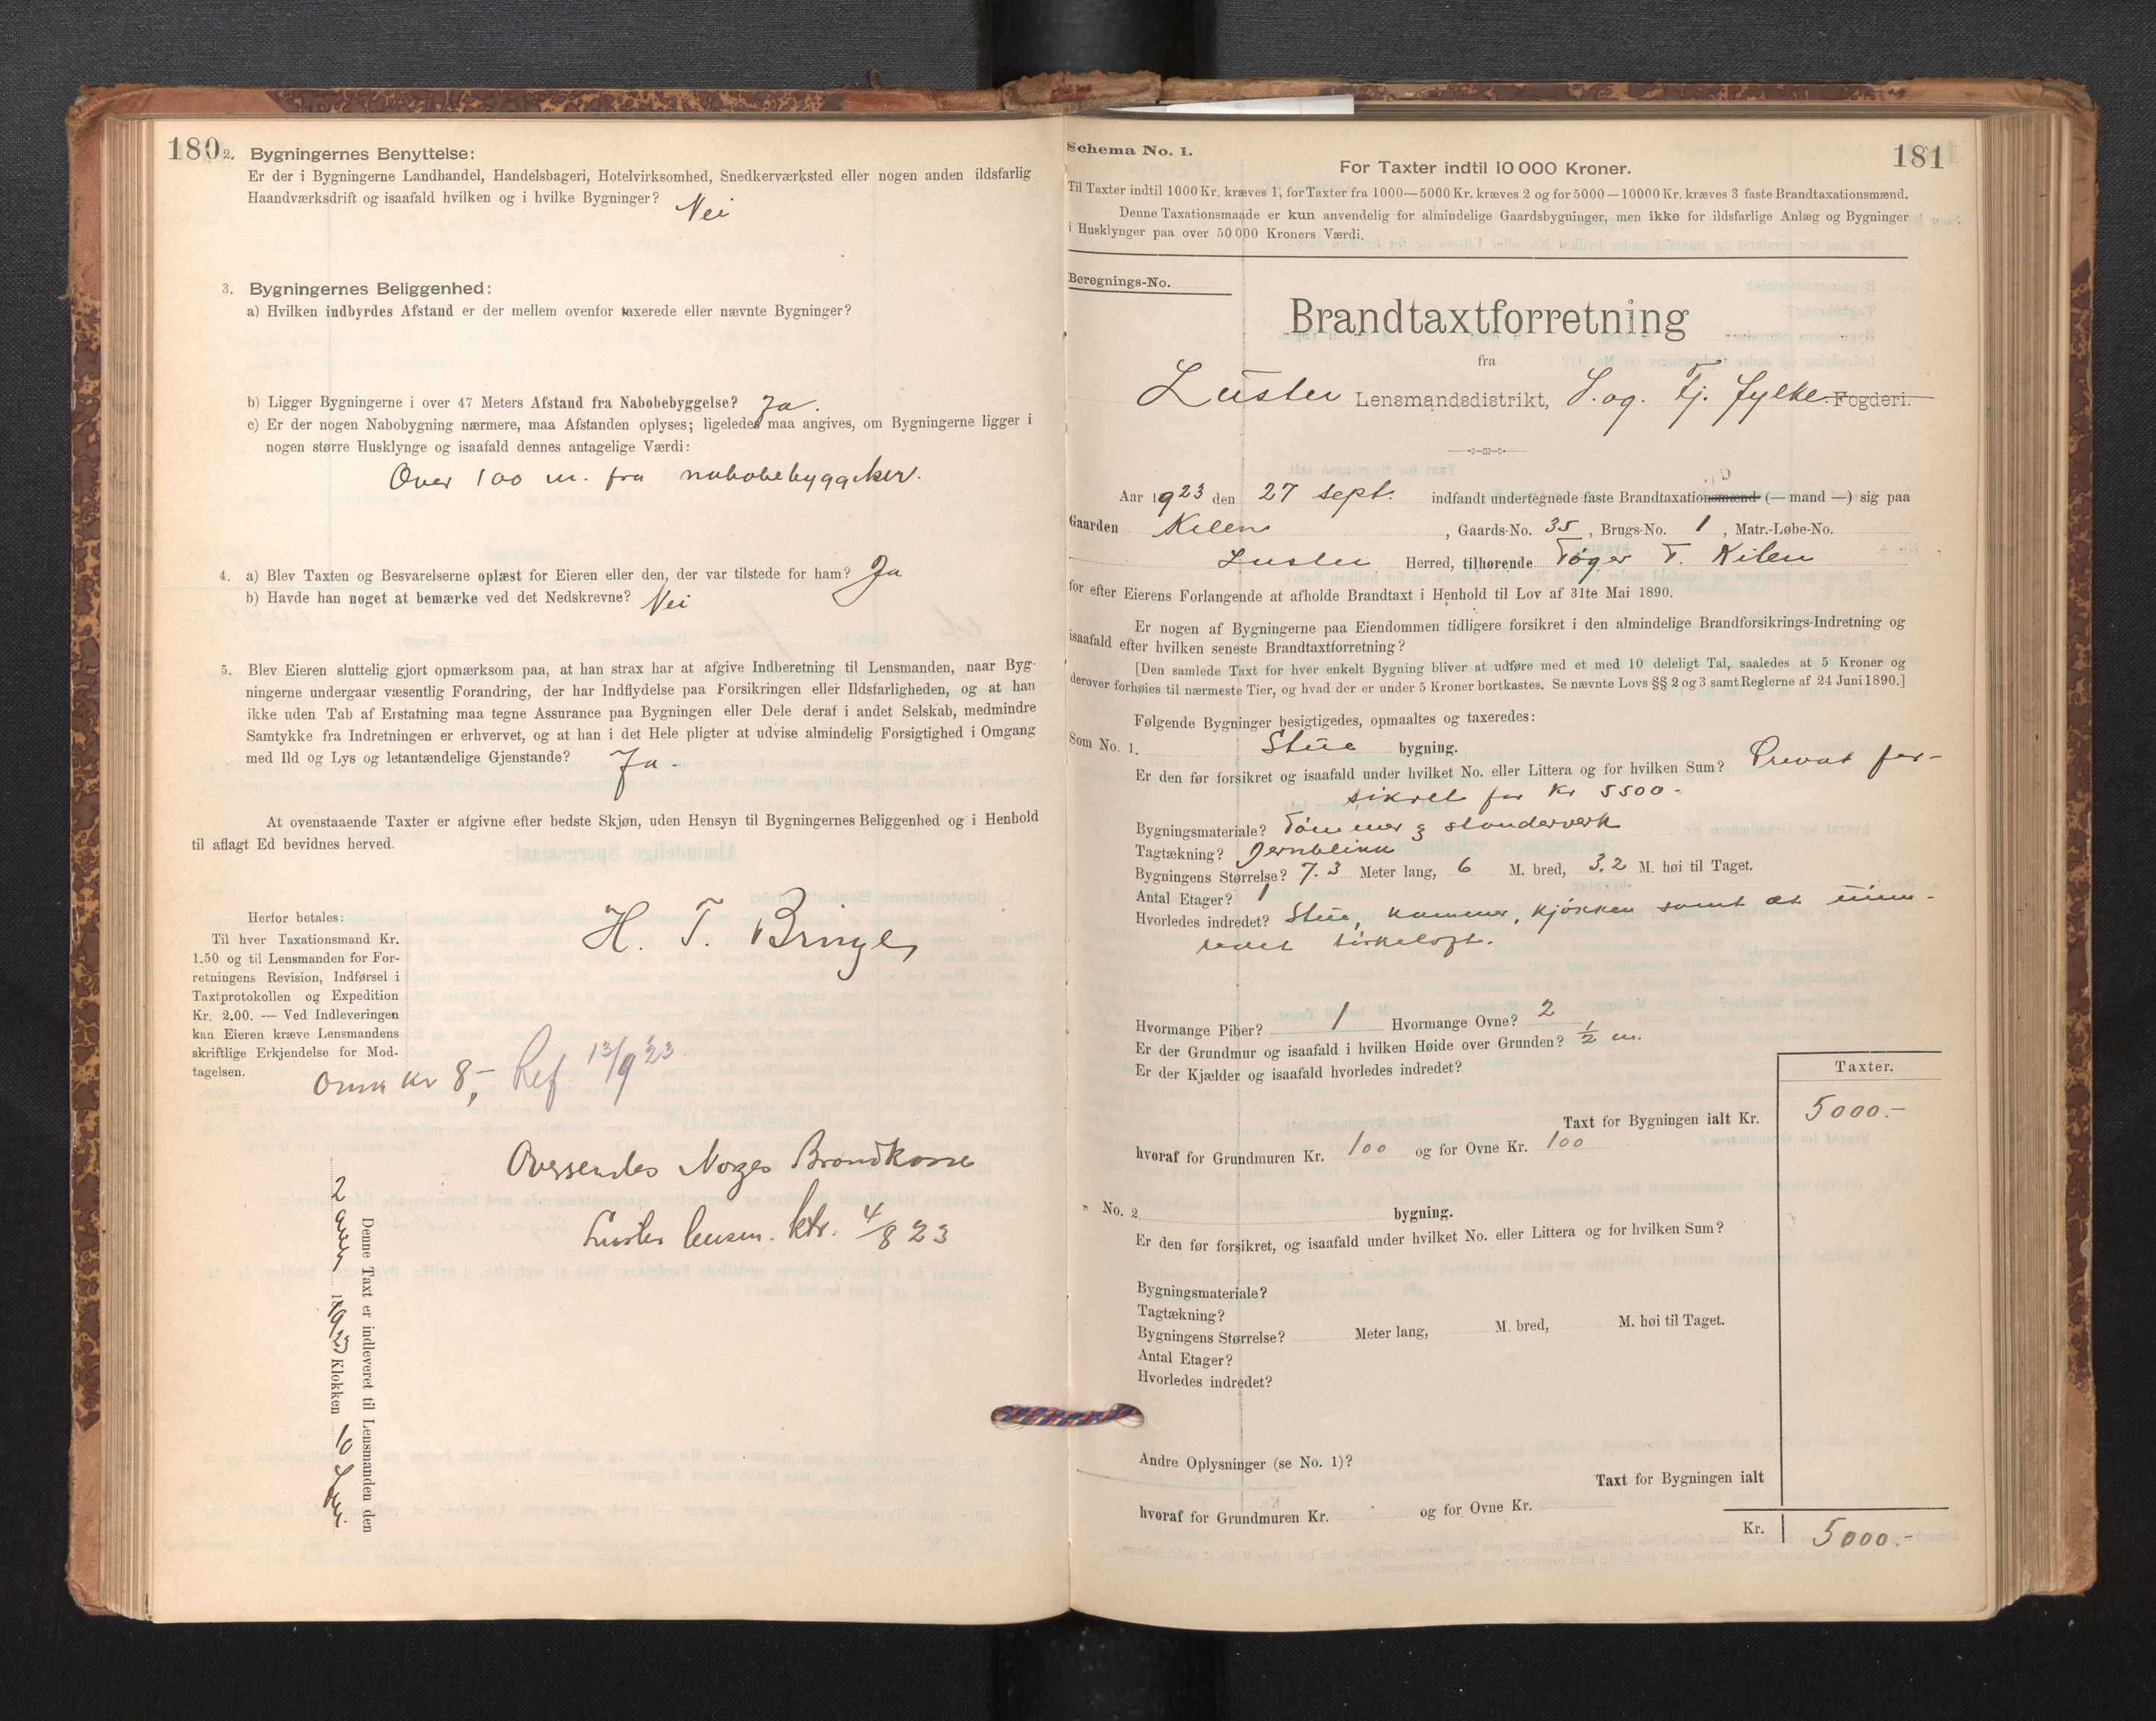 180
2. Bygningernes Benyttelse:
Er der i Bygningerne Landhandel, Handelsbageri, Hotelvirksomhed, Snedkerværksted eller nogen anden ildsfarlig
Haandværksdrift og isaafald hvilken og i hvilke Bygninger? Nei
3. Bygningernes Beliggenhed:
a) Hvilken indbyrdes Afstand er der mellem ovenfor taxerede eller nævnte Bygninger?
b) Ligger Bygningerne i over 47 Meters Afstand fra Nabobebyggelse? Ja.
c) Er der nogen Nabobygning nærmere, maa Afstanden oplyses; ligeledes maa angives, om Bygningerne ligger i
nogen større Husklynge og isaafald dennes antagelige Værdi:
Over 100 m. fra
4. a) Blev Taxten og Besvarelserne oplæst for Eieren eller den, der var tilstede for ham? Ja
b) Havde han noget at bemærke ved det Nedskrevne? Nei
5. Blev Eieren sluttelig gjort opmærksom paa, at han strax har at afgive Indberetning til Lensmanden, naar Byg-
ningerne undergaar væsentlig Forandring, der har Indflydelse paa Forsikringen eller Ildsfarligheden, og at han
ikke uden Tab af Erstatning maa tegne Assurance paa Bygningen eller Dele deraf i andet Selskab, medmindre
Samtykke fra Indretningen er erhvervet, og at han i det Hele pligter at udvise almindelig Forsigtighed i Omgang
med Ild og Lys og letantændelige Gjenstande? Ja -
At ovenstaaende Taxter er afgivne efter bedste Skjøn, uden Hensyn til Bygningernes Beliggenhed og i Henbold
til aflagt Ed bevidnes herved.
H. T. Bringe
Herfor betales:
Til hver Taxationsmand Kr.
1.50 og til Lensmanden for For-
retningens Revision, Indførsel i
Taxtprotokollen og Expedition
Kr. 2.00. — Ved Indleveringen
kan Eieren kræve Lensmandens
skriftlige Erkjendelse for Mod-
tagelsen.
kr 8,- Ref. 13/9 23
Oversendes Norges Brandkasse
Luster lensm. ktr. 4/8 23
Denne Taxt er indleveret til Lensmanden den
2 1923 Klokken 10
Schema No. 1.
181
For Taxter indtil 10 000 Kroner.
Til Taxter indtil 1000 Kr. kræves 1, for Taxter fra 1000—5000 Kr. kræves 2 og for 5000—10000 Kr. kræves 3 faste Brandtaxationsmænd.
Denne Taxationsmaade er kun anvendelig for almindelige Gaardsbygninger, men ikke for ildsfarlige Anlæg og Bygninger
i Husklynger paa over 50 000 Kroners Værdi.
Beregnings-No.
Brandtaxtforretning
fra
Luster Lensmandsdistrikt, S. og Fj. fylke. Fogderi.
Aar 1923 den 27 sept. indfandt undertegnede faste Brandtaxationsmænd (— mand —) sig paa
Gaarden Kilen, Gaards-No. 35, Brugs-No. 1, Matr.-Løbe-No.
Luster Herred, tilhørende Tøger T. Kilen
for efter Eierens Forlangende at afholde Brandtaxt i Henhold til Lov af 31te Mai 1890.
Er nogen af Bygningerne paa Eiendommen tidligere forsikret i den almindelige Brandforsikrings-Indretning og
isaafald efter hvilken seneste Brandtaxtforretning?
[Den samlede Taxt for hver enkelt Bygning bliver at udføre med et med 10 deleligt Tal, saaledes at 5 Kroner og
derover forhøies til nærmeste Tier, og hvad der er under 5 Kroner bortkastes. Se nævnte Lovs §§ 2 og 3 samt Reglerne af 24 Juni 1890.]
Følgende Bygninger besigtigedes, opmaaltes og taxeredes:
Som No. 1. Stue bygning.
Er den før forsikret og isaafald under hvilket No. eller Littera og for hvilken Sum? Privat for-
sikret for Kr 5500-
Bygningsmateriale? Tømmer & standerverk
Tagtækning? Jernblikk
Bygningens Størrelse? 7.3 Meter lang, 6 M. bred, 3.2 M. høi til Taget.
Antal Etager? 1
Hvorledes indredet? Stue, kammer, kjøkken samt et uinn-
redet
Hvormange Piber? 1 Hvormange Ovne? 2
Er der Grundmur og isaafald i hvilken Høide over Grunden? 1/2 m.
Er der Kjælder og isaafald hvorledes indredet?
Taxter.
Taxt for Bygningen ialt Kr. 5000.-
hvoraf for Grundmuren Kr. 100 og for Ovne Kr. 100
" No. 2. bygning.
Er den før forsikret, og isaafald under hvilket No. eller Littera og for hvilken Sum?
Bygningsmateriale?
Tagtækning?
Bygningens Størrelse? Meter lang, M. bred, M. høi til Taget.
Antal Etager?
Hvorledes indredet?
Andre Oplysninger (se No. 1)?
Taxt for Bygningen ialt
hvoraf for Grundmuren Kr. og for Ovne Kr.
Kr. 5000.-